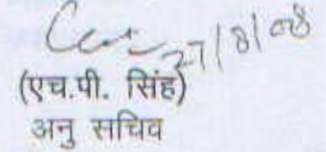 27/8/08
(एच.पी. सिंह)
अनु सचिव